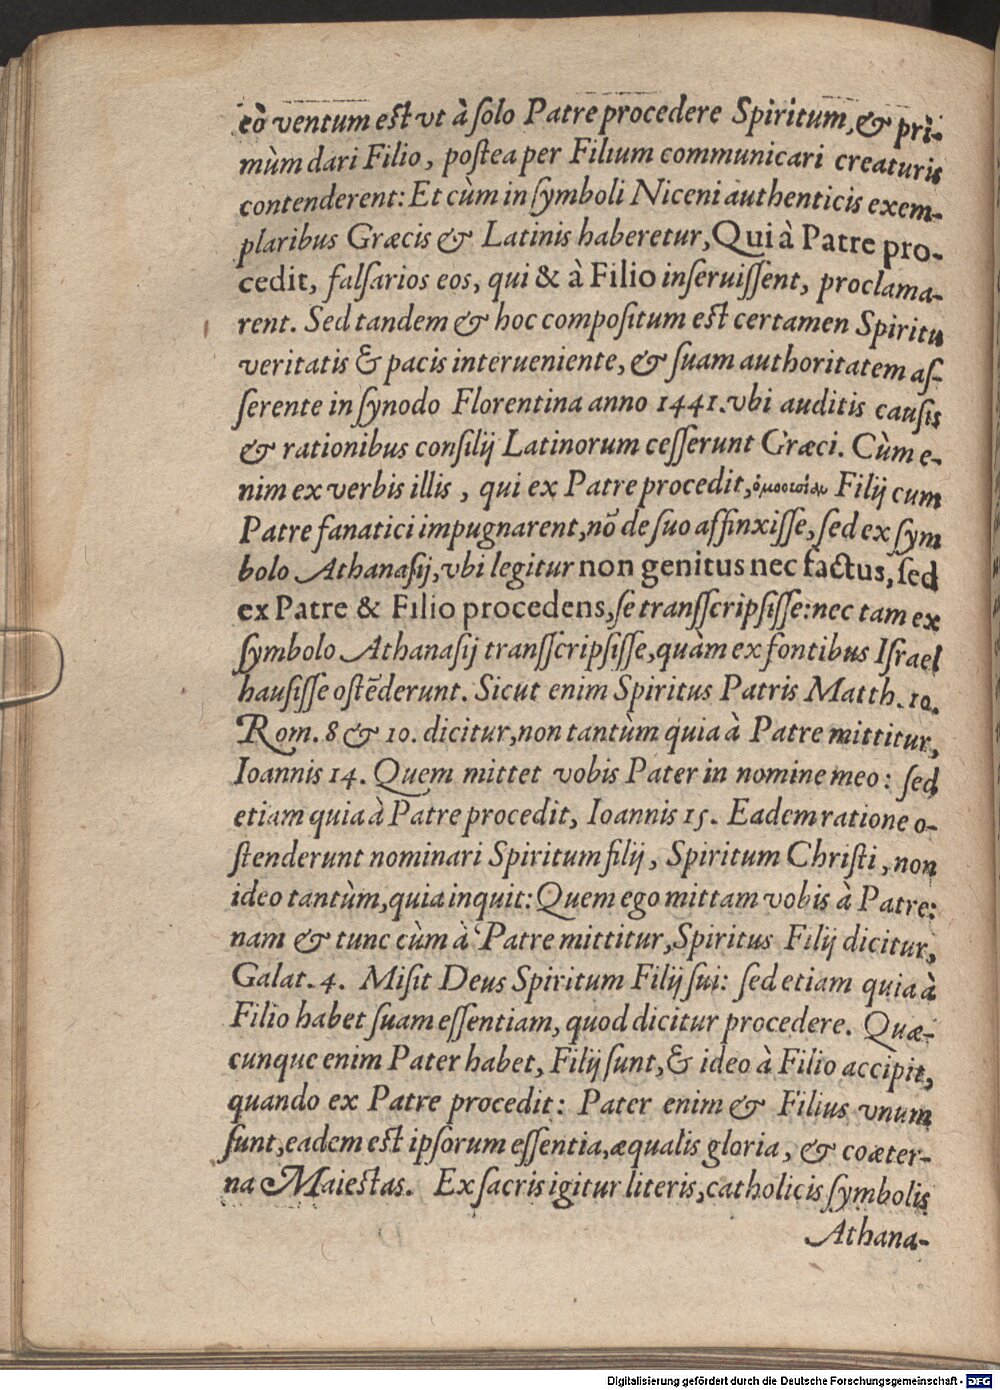 eò ventum est vt à solo Patre procedere Spiritum, & pri-
mùm dari Filio, postea per Filium communicari creaturis
contenderent: Et cùm in symboli Niceni authenticis exem-
plaribus Græcis & Latinis haberetur, Qui à Patre pro-
cedit, falsarios eos, qui & à Filio inseruissent, proclama-
rent. Sed tandem & hoc compositum est certamen Spiritu
veritatis & pacis interueniente, & suam authoritatem as-
serente in synodo Florentina anno 1441. vbi auditis causis
& rationibus consilij Latinorum cesserunt Græci. Cùm e-
nim ex verbis illis, qui ex Patre procedit, ὁμοουσίαν Filij cum
Patre fanatici impugnarent, nõ de suo affinxisse, sed ex sym
bolo Athanasij, vbi legitur non genitus nec factus, sed
ex Patre & Filio procedens, se transscripsisse: nec tam ex
symbolo Athanasij transscripsisse, quàm ex fontibus Israel
hausisse ostẽderunt. Sicut enim Spiritus Patris Matth. 10.
Rom. 8 & 10. dicitur, non tantùm quia à Patre mittitur,
Ioannis 14. Quem mittet vobis Pater in nomine meo: sed
etiam quia à Patre procedit, Ioannis 15. Eadem ratione o-
stenderunt nominari Spiritum filij, Spiritum Christi, non
ideo tantùm, quia inquit: Quem ego mittam vobis à Patre:
nam & tunc cùm à Patre mittitur, Spiritus Filij dicitur,
Galat. 4. Misit Deus Spiritum Filij sui: sed etiam quia à
Filio habet suam essentiam, quod dicitur procedere. Quæ-
cunque enim Pater habet, Filij sunt, & ideo à Filio accipit,
quando ex Patre procedit: Pater enim & Filius vnum
sunt, eadem est ipsorum essentia, æqualis gloria, & coæter-
na Maiestas. Ex sacris igitur literis, catholicis symbolis
Athana-
Digitalisierung gefördert durch die Deutsche Forschungsgemeinschaft - DFG